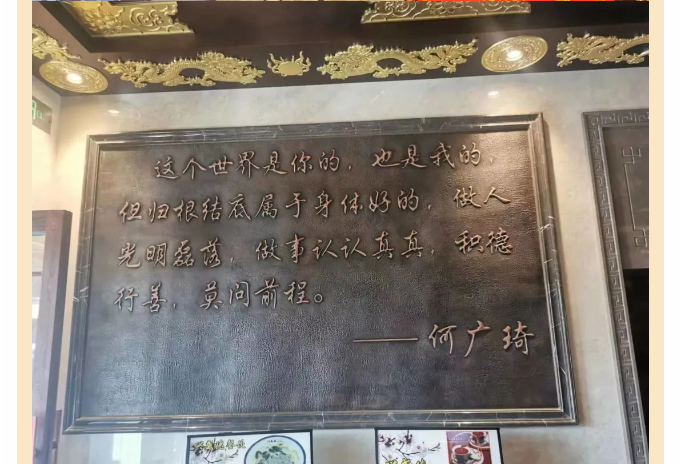 这个世界是你的，也是我的，
但归根结底属于身体好的，做人
光明磊落，做事认认真真，积德
行善，莫问前程。
——何广琦